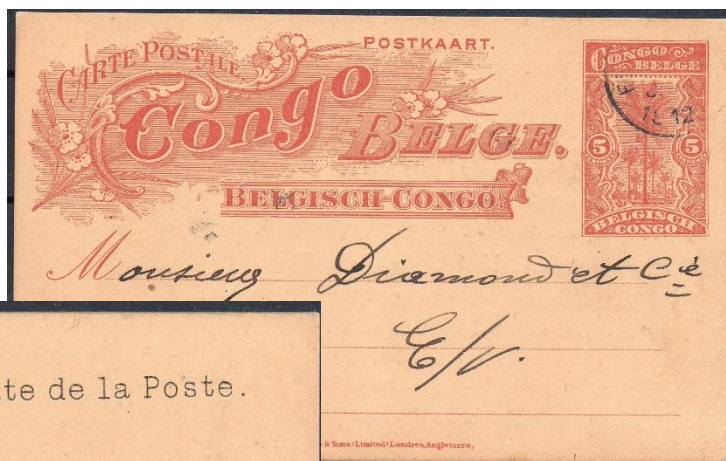 CARTE POSTALE.
POSTKAART.
Congo
BELGE.
BELGISCH-CONGO
CONGO
BELGE
5 5
BELGISCH
CONGO
12
Monsieur Diamond et Cie
E/V.
te de la Poste.
& Sons (Limited) Londres, Angleterre,